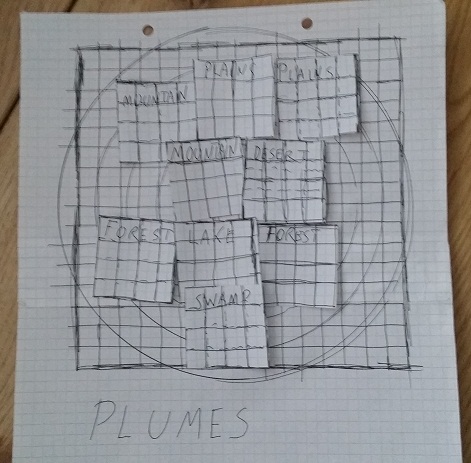 PLAINS PLAINS
MOUNTAIN
MOUNTAIN DESERT
FOREST LAKE FOREST
SWAMP
PLUMES